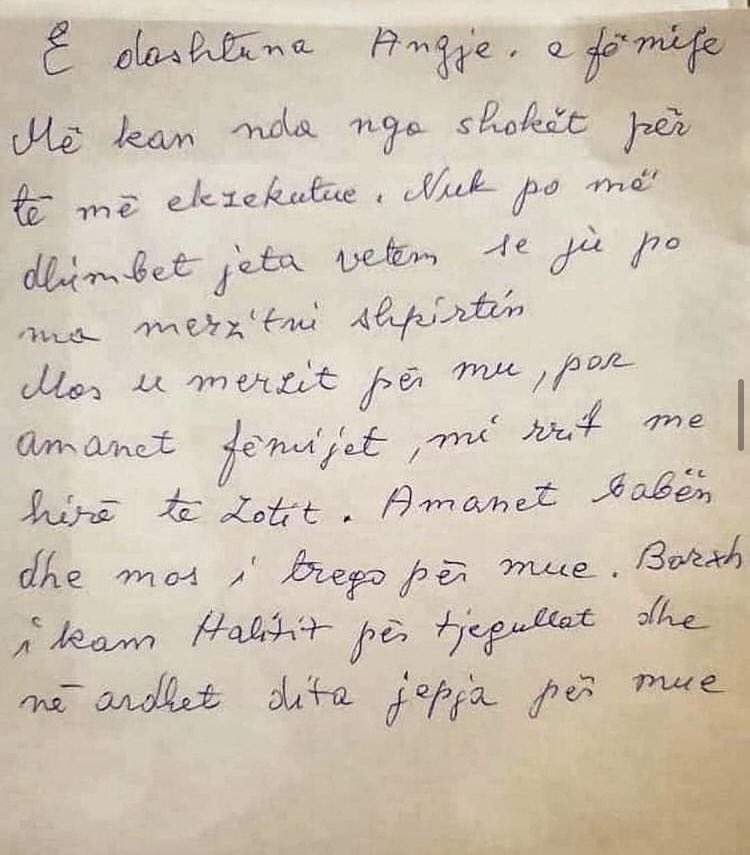 E dashtuna Angje. e fëmije
Më kan nda nga shokët për
të më ekzekutue. Nuk po më
dhimbet jeta vetem se jù po
ma merzitni shpirtin
Mos u merzit për mu, por
amanet fëmijet, mi rrit me
hirë të Zotit. Amanet babën
dhe mos i trego për mue. Borxh
i kam Halitit për tjegullat dhe
në ardhet dita jepja për mue